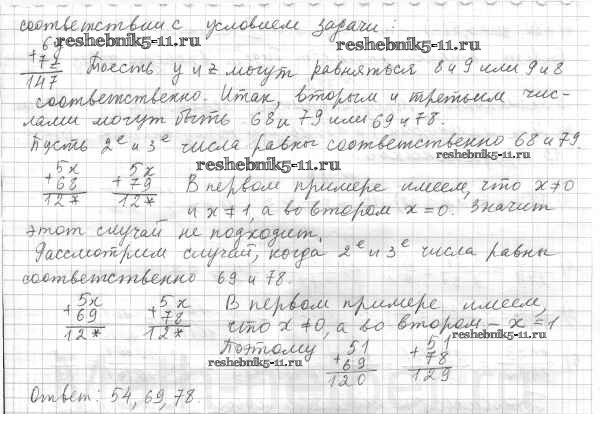 соответствии с условием задачи:
reshebnik5-11.ru reshebnik5-11.ru
6y
+7z
147
То есть y и z могут равняться 8 и 9 или 9 и 8
соответственно. Итак, вторым и третьим чис-
лами могут быть 68 и 79 или 69 и 78.
Пусть 2е и 3е числа равны соответственно 68 и 79.
reshebnik5-11.ru
reshebnik5-11.ru
5x 5x
+68 +79
12* 12*
В первом примере имеем, что x≠0
и x≠1, а во втором x=0. Значит
этот случай не подходит.
Рассмотрим случай, когда 2е и 3е числа равны
соответственно 69 и 78.
5x 5x
+69 +78
12* 12*
В первом примере имеем,
что x≠0, а во втором – x=1
reshebnik5-11.ru
Поэтому
reshebnik5-11.ru
51 51
+69 +78
120 129
Ответ: 54, 69, 78.